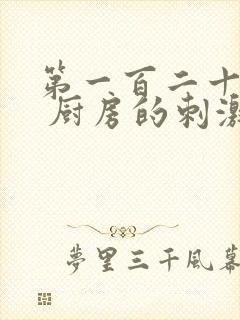 第一百二十
厨房的刺激
夢里三千風幕